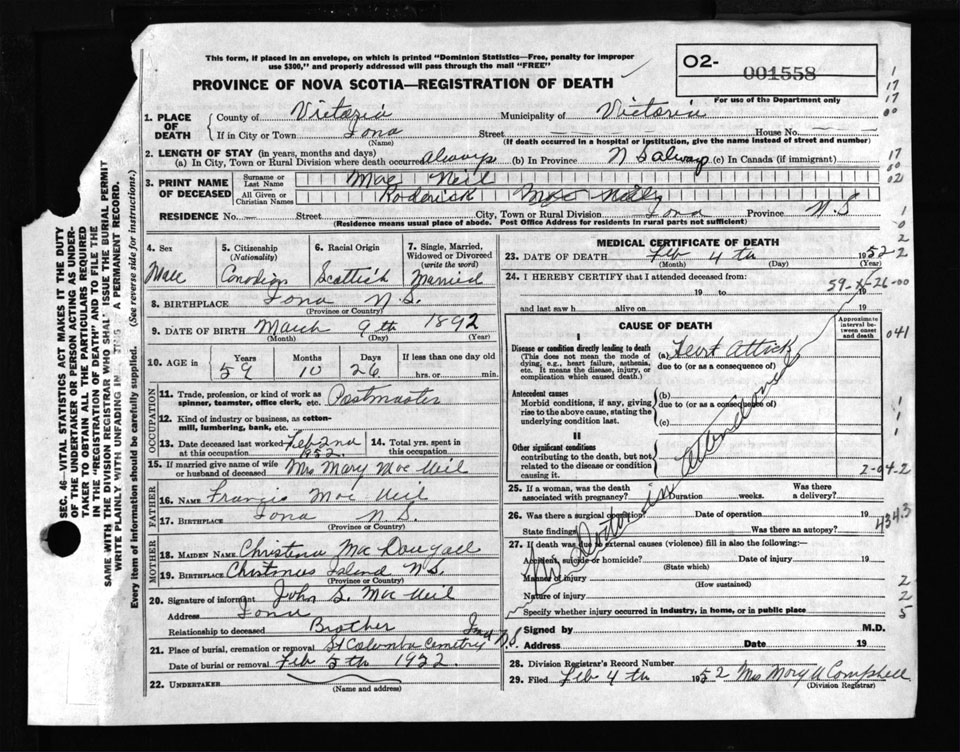 This form, if placed in an envelope, on which is printed "Dominion Statistics—Free, penalty for improper
use $300," and properly addressed will pass through the mail "FREE"
PROVINCE OF NOVA SCOTIA—REGISTRATION OF DEATH
02- 001558
For use of the Department only
1. PLACE OF DEATH
County of Victoria Municipality of Victoria
If in City or Town Iona Street House No.
(Name) (If death occurred in a hospital or institution, give the name instead of street and number)
2. LENGTH OF STAY (in years, months and days)
(a) In City, Town or Rural Division where death occurred always (b) In Province N S always (c) In Canada (if immigrant)
3. PRINT NAME OF DECEASED
Surname or Last Name Mac Neil
All Given or Christian Names Roderick
RESIDENCE No. Street City, Town or Rural Division Iona Province N.S
(Residence means usual place of abode. Post Office Address for residents in rural parts not sufficient)
4. Sex Male
5. Citizenship (Nationality) Canadian
6. Racial Origin Scottish
7. Single, Married, Widowed or Divorced (write the word) Married
8. BIRTHPLACE Iona N.S.
(Province or Country)
9. DATE OF BIRTH March 9th 1892
(Month) (Day) (Year)
10. AGE in Years 59 Months 10 Days 26 If less than one day old
hrs. or min.
OCCUPATION
11. Trade, profession, or kind of work as spinner, teamster, office clerk, etc. Postmaster
12. Kind of industry or business, as cotten-mill, lumbering, bank, etc.
13. Date deceased last worked at this occupation Feb 2nd 1952.
14. Total yrs. spent in this occupation
15. If married give name of wife or husband of deceased Mrs Mary Mac Neil
FATHER
16. NAME Francis Mac Neil
17. BIRTHPLACE Iona N.S.
(Province or Country)
MOTHER
18. MAIDEN NAME Christena Mac Dougall
19. BIRTHPLACE Christmas Island N.S.
(Province or Country)
20. Signature of informant John S. Mac Neil
Address Iona
Relationship to deceased Brother
21. Place of burial, cremation or removal St Columba Cemetery Iona N.S.
Date of burial or removal Feb 5th 1952.
22. UNDERTAKER
(Name and address)
MEDICAL CERTIFICATE OF DEATH
23. DATE OF DEATH Feb 4th 1952
(Month) (Day) (Year)
24. I HEREBY CERTIFY that I attended deceased from:
59-X-26-00
19 to 19
and last saw h alive on 19
CAUSE OF DEATH
Approximate interval between onset and death
I
Disease or condition directly leading to death
(This does not mean the mode of dying, e.g., heart failure, asthenia, etc. It means the disease, injury, or complication which caused death.)
(a) Heart Attack
due to (or as a consequence of)
Antecedent causes
Morbid conditions, if any, giving rise to the above cause, stating the underlying condition last.
(b)
due to (or as a consequence of)
(c)
II
Other significant conditions
contributing to the death, but not related to the disease or condition causing it.
No Doctor in Attendance
25. If a woman, was the death associated with pregnancy? Duration weeks. Was there a delivery?
26. Was there a surgical operation? Date of operation 19
State findings Was there an autopsy?
27. If death was due to external causes (violence) fill in also the following:—
Accident, suicide or homicide? Date of injury 19
(State which)
Manner of injury
(How sustained)
Nature of injury
Specify whether injury occurred in industry, in home, or in public place
Signed by M.D.
Address Date 19
28. Division Registrar's Record Number
29. Filed Feb 4th 1952 Mrs Mary A Campbell
(Division Registrar)
041
2-04-2
4343
SEC. 46—VITAL STATISTICS ACT MAKES IT THE DUTY
OF THE UNDERTAKER OR PERSON ACTING AS UNDER-
TAKER TO OBTAIN ALL THE PARTICULARS REQUIRED
IN THE "REGISTRATION OF DEATH" AND TO FILE THE
SAME WITH THE DIVISION REGISTRAR WHO SHALL ISSUE THE BURIAL PERMIT
WRITE PLAINLY WITH UNFADING A PERMANENT RECORD.
Every item of information should be carefully supplied. (See reverse side for instructions.)